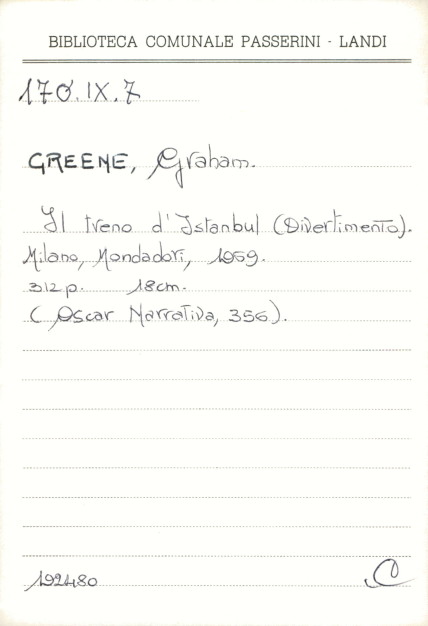 BIBLIOTECA COMUNALE PASSERINI - LANDI
170.IX.7
GREENE, Graham.
Il treno d'Istanbul (Divertimento).
Milano, Mondadori, 1959.
312 p. 18cm.
(Oscar Narrativa, 356).
192480
C